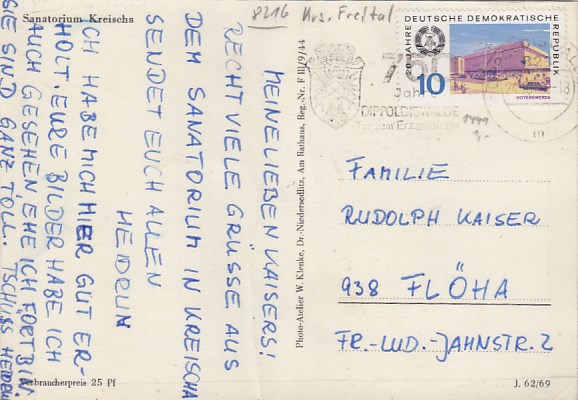 Sanatorium Kreischa
8216 Krs. Freital
MEINE LIEBEN KAISERS!
RECHT VIELE GRÜSSE AUS
DEM SANATORIUM IN KREISCHA
SENDET EUCH ALLEN
HEDRUN
ICH HABE MICH HIER GUT ER-
HOLT. EURE BILDER HABE ICH
AUCH GESEHEN EHE ICH FORTBIN.
SIE SIND GANZ TOLL. TSCHÜSS HEDRUN
Verbraucherpreis 25 Pf
Photo-Atelier W. Klenke, Dr.-Niedersedlitz, Am Rathaus, Reg.-Nr. P III/9/44
20 JAHRE DEUTSCHE DEMOKRATISCHE
REPUBLIK
10
HOYERSWERDA
750
Jahre
DIPPOLDISWALDE
Tor zum Erzgebirge
FAMILIE
RUDOLPH KAISER
938 FLÖHA
FR.-LUD.-JAHNSTR. 2
J. 62/69